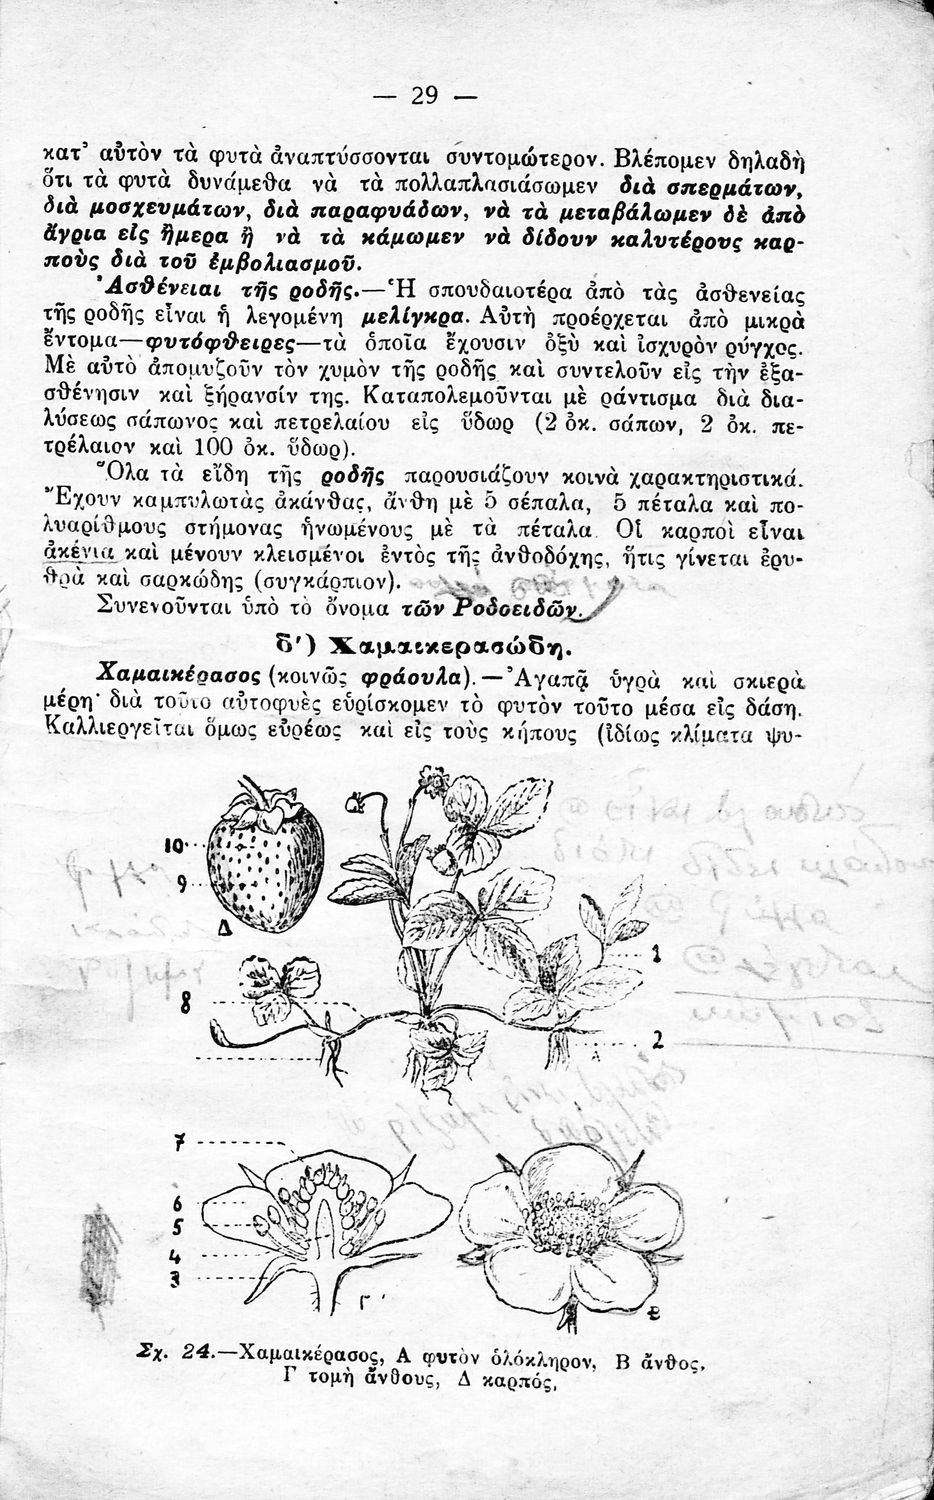 — 29 —
κατ’ αὐτὸν τὰ φυτὰ ἀναπτύσσονται συντομώτερον. Βλέπομεν δηλαδὴ
ὅτι τὰ φυτὰ δυνάμεθα νὰ τὰ πολλαπλασιάσωμεν διὰ σπερμάτων,
διὰ μοσχευμάτων, διὰ παραφυάδων, νὰ τὰ μεταβάλωμεν δὲ ἀπὸ
ἄγρια εἰς ἥμερα ἢ νὰ τὰ κάμωμεν νὰ δίδουν καλυτέρους καρ-
ποὺς διὰ τοῦ ἐμβολιασμοῦ.
Ἀσθένειαι τῆς ροδῆς.—Ἡ σπουδαιοτέρα ἀπὸ τὰς ἀσθενείας
τῆς ροδῆς εἶναι ἡ λεγομένη μελίγκρα. Αὐτὴ προέρχεται ἀπὸ μικρὰ
ἔντομα—φυτόφθειρες—τὰ ὁποῖα ἔχουσιν ὀξὺ καὶ ἰσχυρὸν ρύγχος.
Μὲ αὐτὸ ἀπομυζοῦν τὸν χυμὸν τῆς ροδῆς καὶ συντελοῦν εἰς τὴν ἐξα-
σθένησιν καὶ ξήρανσίν της. Καταπολεμοῦνται μὲ ράντισμα διὰ δια-
λύσεως σάπωνος καὶ πετρελαίου εἰς ὕδωρ (2 ὀκ. σάπων, 2 ὀκ. πε-
τρέλαιον καὶ 100 ὀκ. ὕδωρ).
Ὅλα τὰ εἴδη τῆς ροδῆς παρουσιάζουν κοινὰ χαρακτηριστικά.
Ἔχουν καμπυλωτὰς ἀκάνθας, ἄνθη μὲ 5 σέπαλα, 5 πέταλα καὶ πο-
λυαρίθμους στήμονας ἡνωμένους μὲ τὰ πέταλα. Οἱ καρποὶ εἶναι
ἀκένια καὶ μένουν κλεισμένοι ἐντὸς τῆς ἀνθοδόχης, ἥτις γίνεται ἐρυ-
θρὰ καὶ σαρκώδης (συγκάρπιον).
Συνενοῦνται ὑπὸ τὸ ὄνομα τῶν Ροδοειδῶν.
δ') Χαμαικερασώδη.
Χαμαικέρασος (κοινῶς φράουλα).—Ἀγαπᾷ ὑγρὰ καὶ σκιερὰ
μέρη· διὰ τοῦτο αὐτοφυὲς εὑρίσκομεν τὸ φυτὸν τοῦτο μέσα εἰς δάση.
Καλλιεργεῖται ὅμως εὐρέως καὶ εἰς τοὺς κήπους (ἰδίως κλίματα ψυ-
10
9
Δ
1
8
2
Α
7
6
5
4
3
Γ
Β
Σχ. 24.—Χαμαικέρασος, Α φυτὸν ὁλόκληρον, Β ἄνθος,
Γ τομὴ ἄνθους, Δ καρπός,